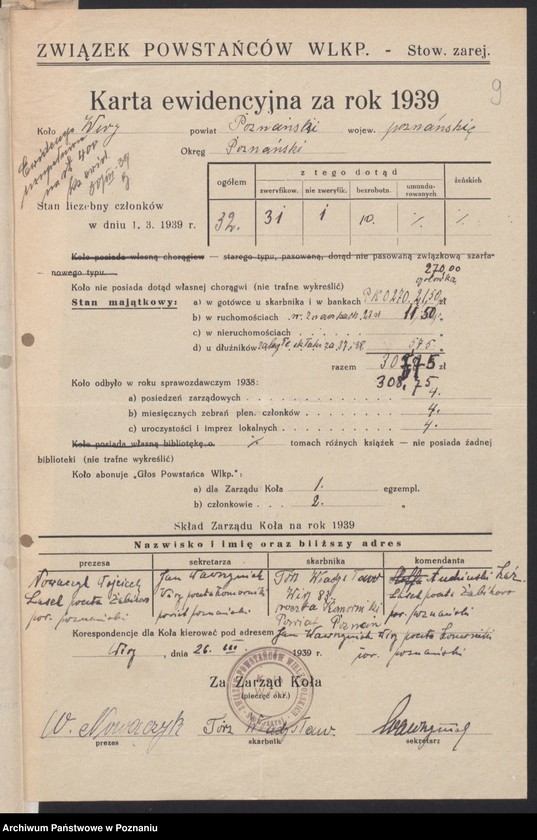 ZWIĄZEK POWSTAŃCÓW WLKP. - Stow. zarej.
9
Karta ewidencyjna za rok 1939
Koło Wiry powiat Poznański wojew. poznańskie
Okręg Poznański
z tego dotąd
ogółem zweryfikow. nie zweryfik. bezrobotn. umundurowanych żeńskich
Stan liczebny członków
w dniu 1. 3. 1939 r. 32. 31 1 10. % %
Koło posiada własną chorągiew — starego typu, pasowaną, dotąd nie pasowaną związkową sztafa-
nowego typu.
270,00
gotówka
Koło nie posiada dotąd własnej chorągwi (nie trafne wykreślić)
Stan majątkowy: a) w gotówce u skarbnika i w bankach PKO 270. 21,50 zł
b) w ruchomościach w znaczkach 11 50
c) w nieruchomościach
d) u dłużników zaległe składki za 37 i 38 5 75
razem zł
308,75
Koło odbyło w roku sprawozdawczym 1938:
a) posiedzeń zarządowych 4.
b) miesięcznych zebrań plen. członków 4.
c) uroczystości i imprez lokalnych 4.
Koło posiada własną bibliotekę o % tomach różnych książek — nie posiada żadnej
biblioteki (nie trafne wykreślić)
Koło abonuje „Głos Powstańca Wlkp.":
a) dla Zarządu Koła 1. egzempl.
b) członkowie 2. „
Skład Zarządu Koła na rok 1939
Nazwisko i imię oraz bliższy adres
prezesa sekretarza skarbnika komendanta
Nowaczyk Wojciech Jan Wawrzyniak Tórz Władysław
Lasek poczta Żabikowo Wiry poczta Komorniki Wiry 83 Lasek poczta Żabikowo
pow. poznański powiat poznański poczta Komorniki pow. poznański
Powiat Poznań
Korespondencje dla Koła kierować pod adresem Jan Wawrzyniak Wiry poczta Komorniki
pow. poznański
Wiry, dnia 26. III. 1939 r.
Za Zarząd Koła
(pieczęć okr.)
W. Nowaczyk Tórz Władysław. Wawrzyniak
prezes skarbnik sekretarz
Archiwum Państwowe w Poznaniu